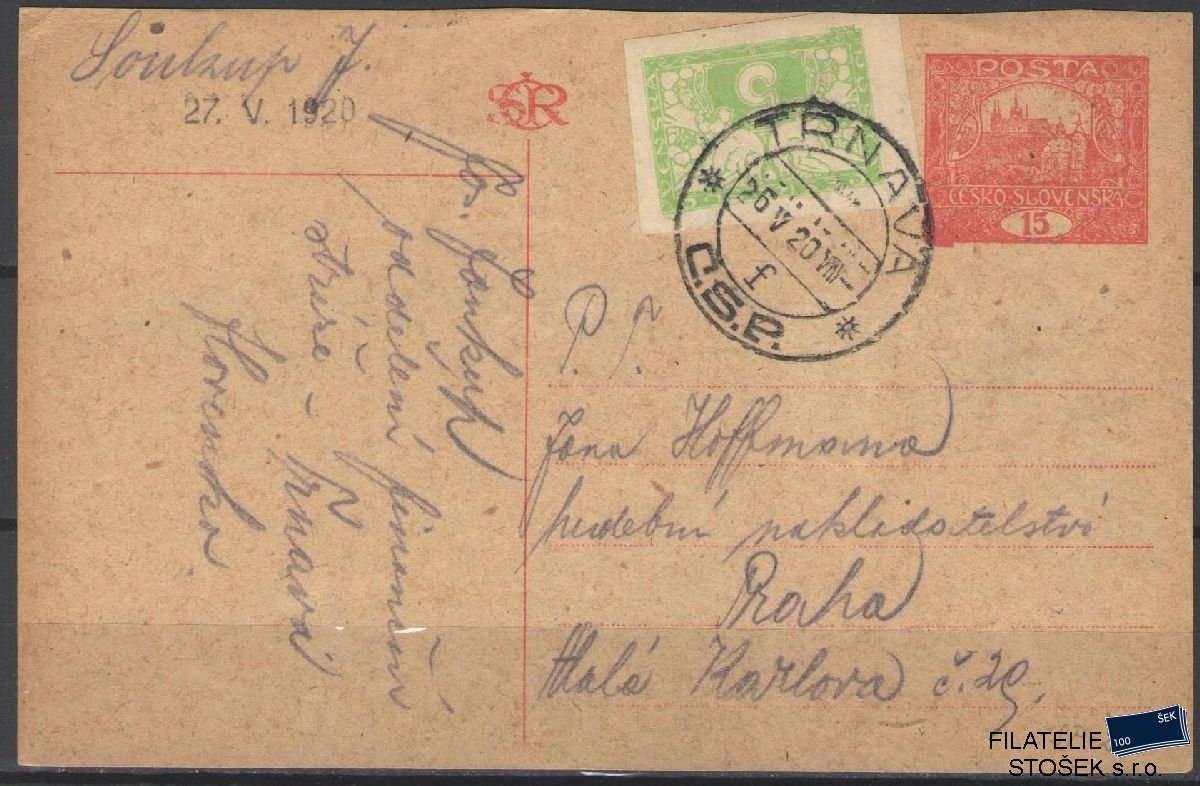 Soukup J.
27. V. 1920
ČSR
POSTA
ČESKO-SLOVENSKÁ
15
TRNAVA
26 V 20 VIII
f
Č.S.P.
P. T.
Jana Hoffmana
hudební nakladatelství
Praha
Malá Karlova č. 29.
oddělení finanční
stráže –
Trnava
Slovensko.
FILATELIE
STOŠEK s.r.o.
100 ŠEK